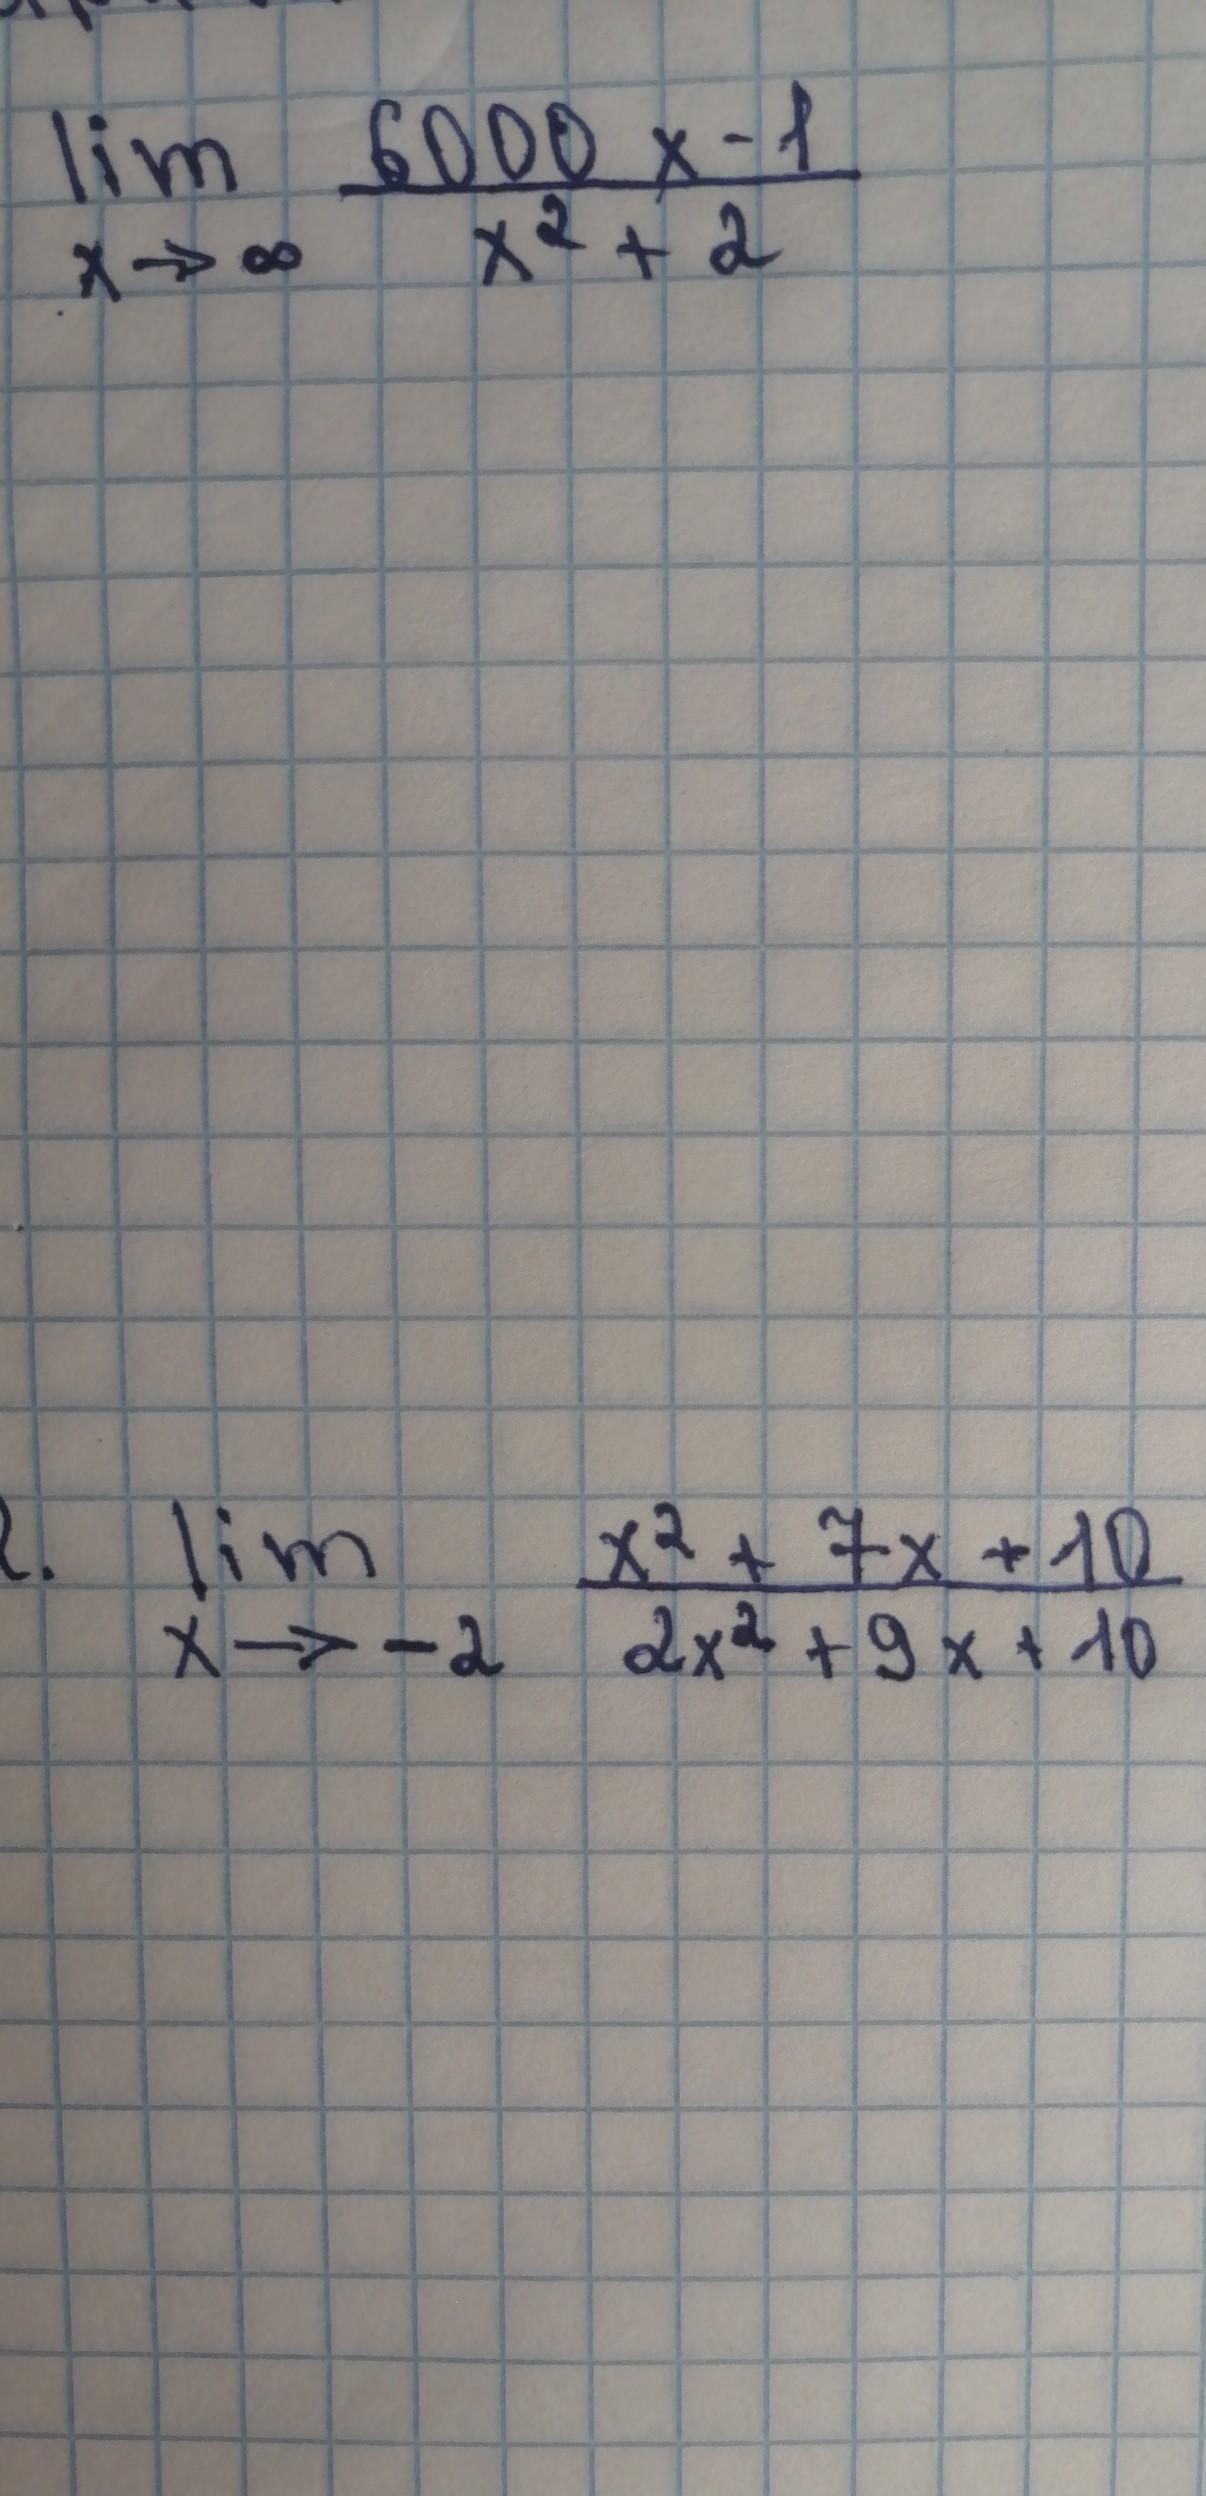 lim 6000 x - 1
x → ∞ x² + 2
2. lim x² + 7x + 10
x → -2 2x² + 9x + 10